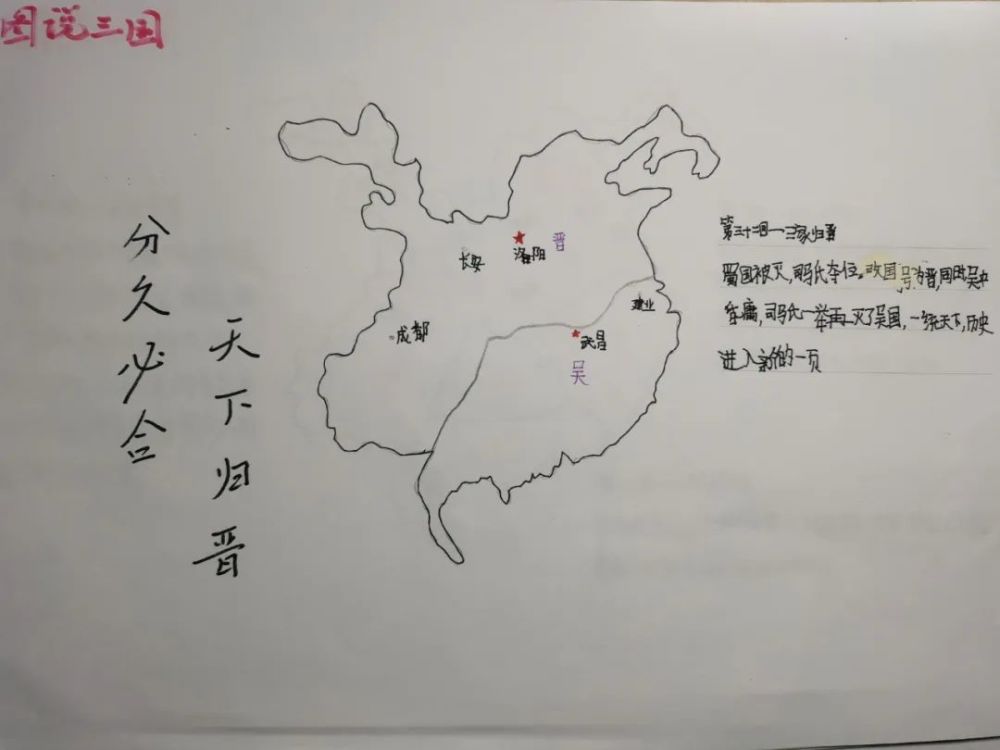 图说三国
分久必合
天下归晋
长安
洛阳
晋
成都
建业
武昌
吴
第三十二回一三家归晋
蜀国被灭,司马氏夺位。改国号为晋,同时吴中
年庸,司马氏一举再灭了吴国,一统天下,历史
进入新的一页